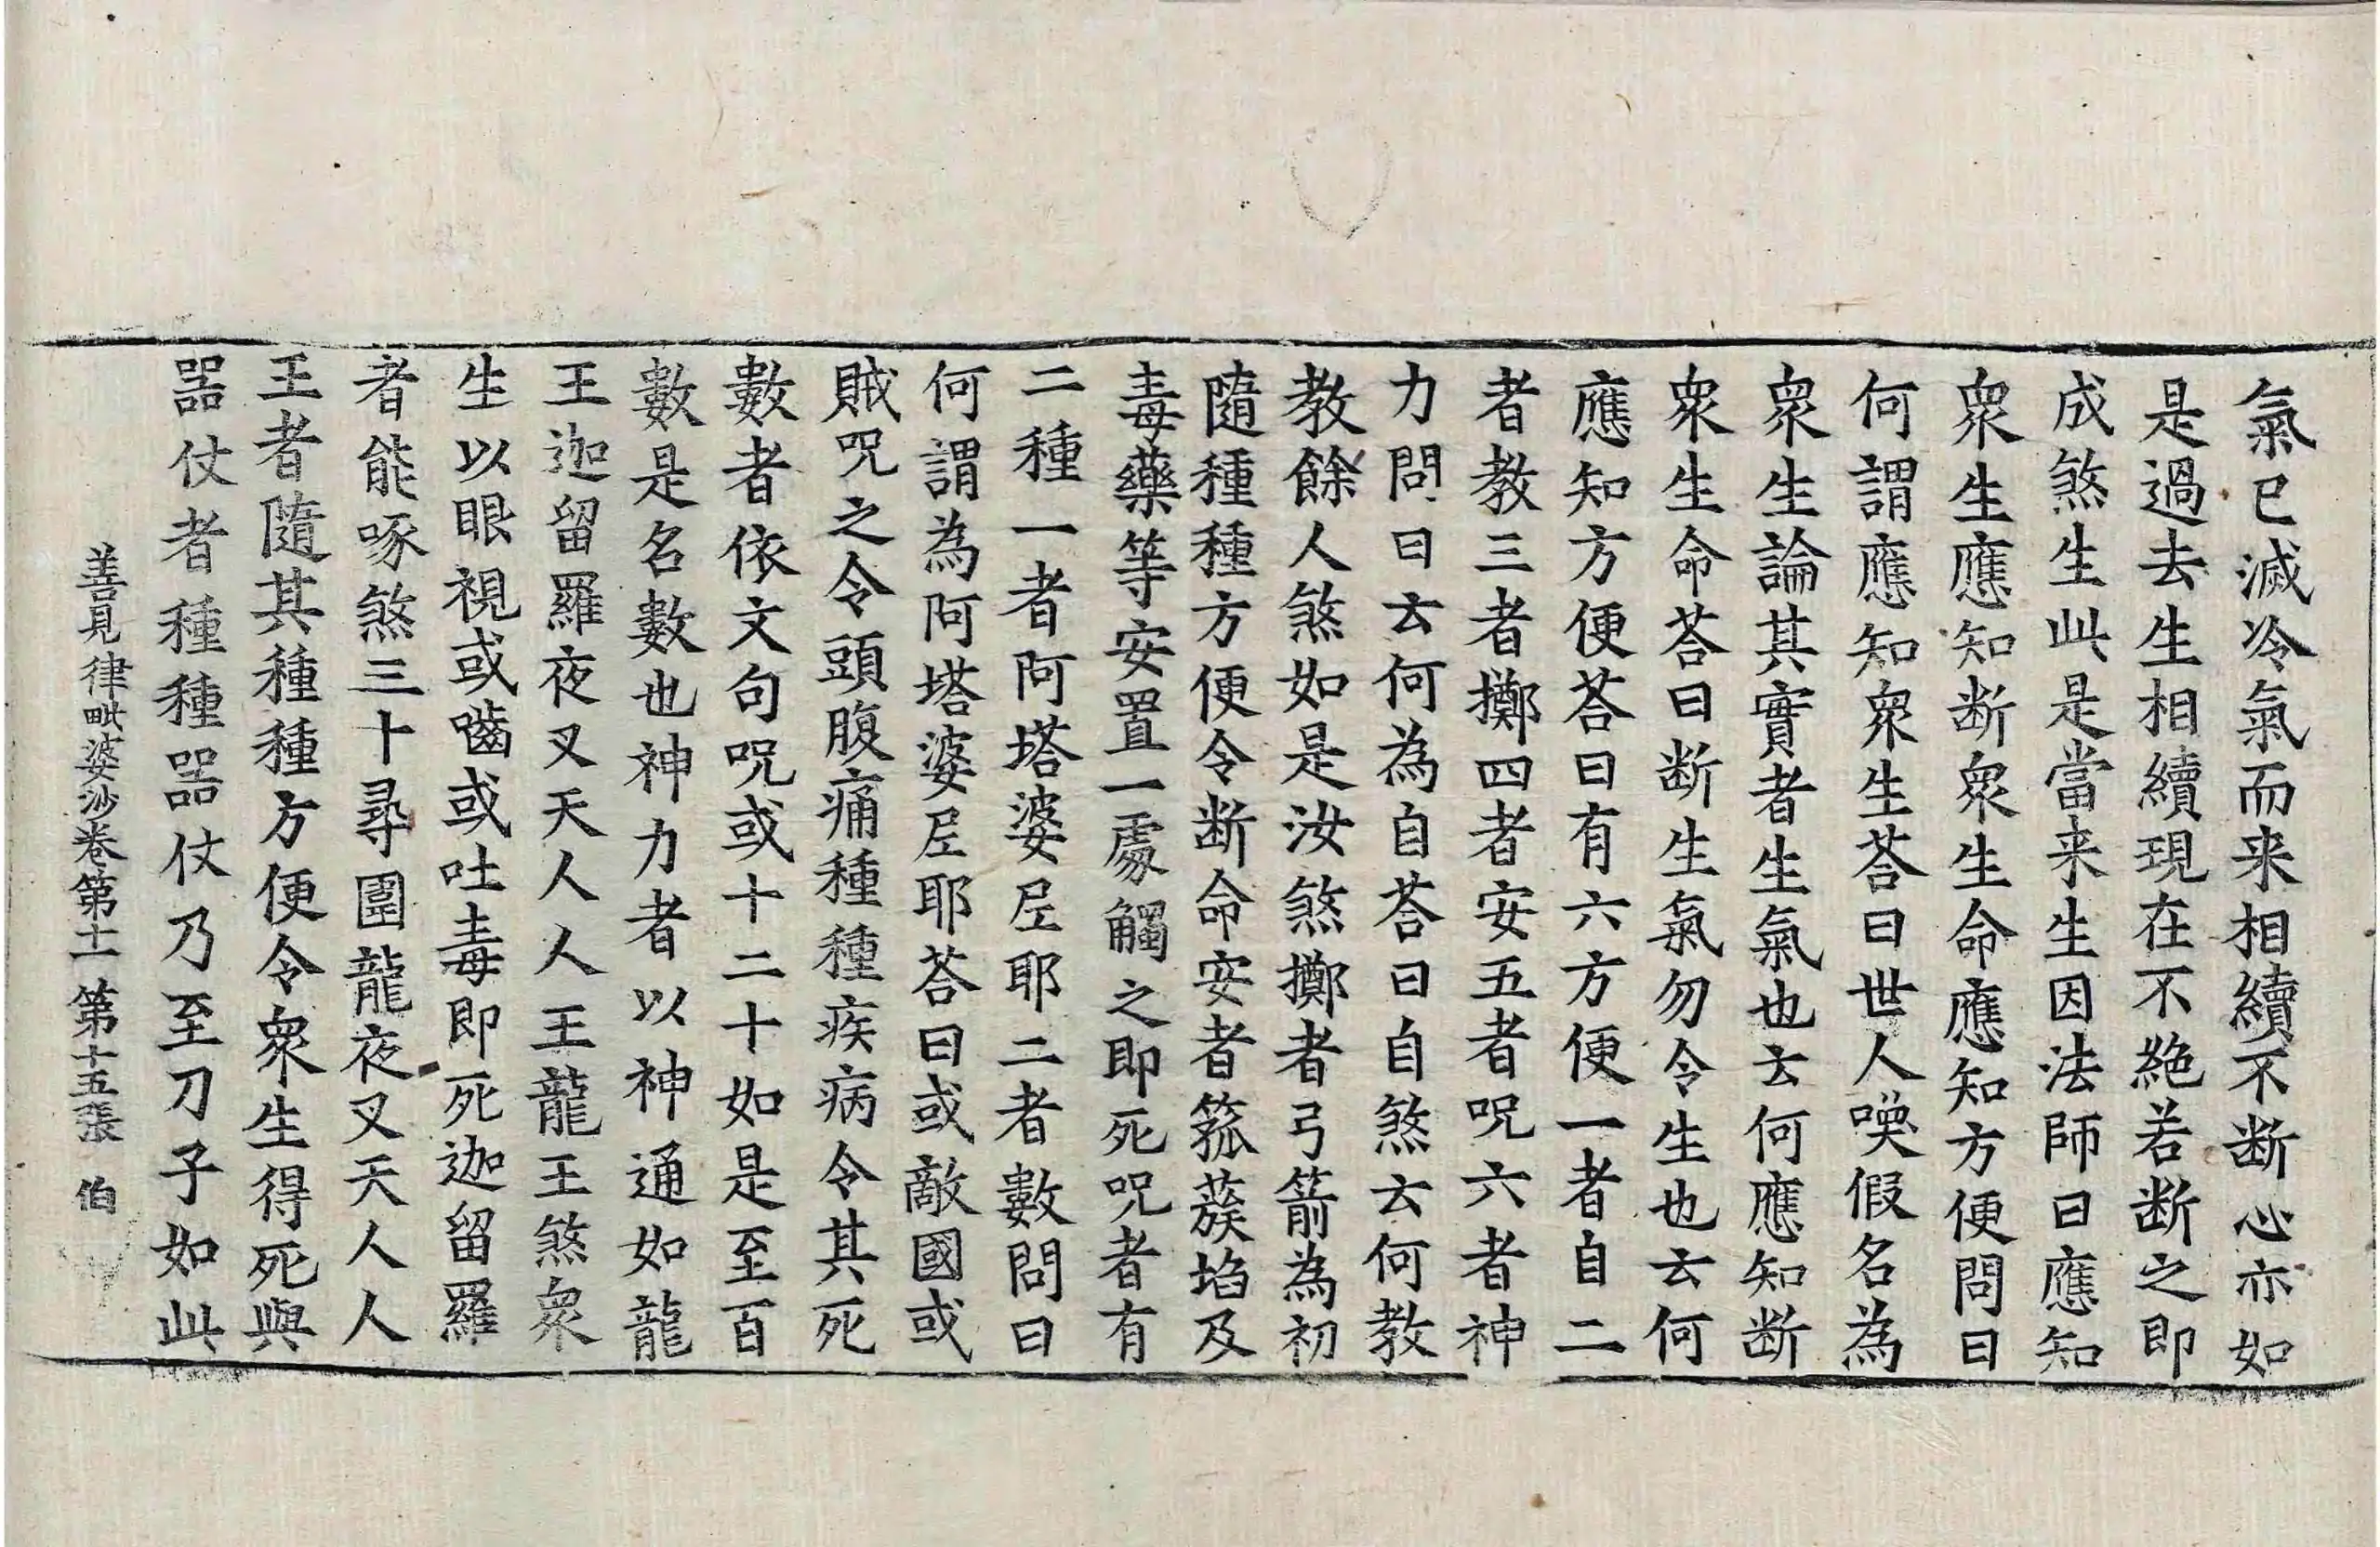 氣已滅冷氣而来相續不断心亦如
是過去生相續現在不絶若断之即
成煞生此是當来生因法師曰應知
衆生應知断衆生命應知方便問曰
何謂應知衆生荅曰世人喚假名為
衆生論其實者生氣也云何應知断
衆生命荅曰断生氣勿令生也云何
應知方便荅曰有六方便一者自二
者教三者擲四者安五者呪六者神
力問曰云何為自荅曰自煞云何教
教餘人煞如是汝煞擲者弓箭為初
隨種種方便令断命安者菰蔟埳及
毒藥等安置一處觸之即死呪者有
二種一者阿塔婆𡰱耶二者數問曰
何謂為阿塔婆𡰱耶荅曰或敵國或
賊呪之令頭腹痛種種疾病令其死
數者依文句呪或十二十如是至百
數是名數也神力者以神通如龍
王迦留羅夜叉天人人王龍王煞衆
生以眼視或嚙或吐毒即死迦留羅
者能啄煞三十尋圍龍夜叉天人人
王者隨其種種方便令衆生得死與
器仗者種種器仗乃至刀子如此
善見律毗婆沙卷第十一 第十五張 伯